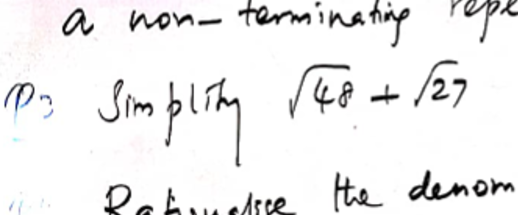 a non-terminating repe
P3 Simplify √48 + √27
Rationalise the denom